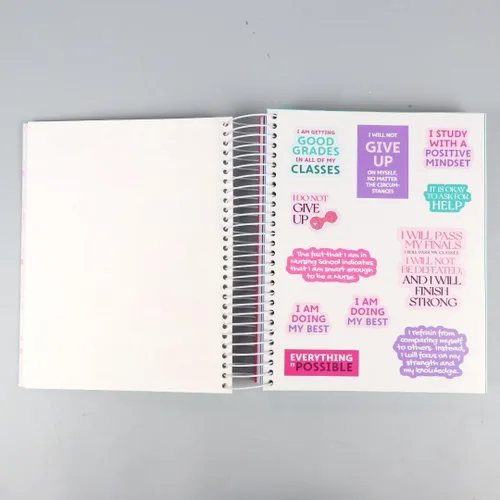 I AM GETTING
GOOD
GRADES
IN ALL OF MY
CLASSES
I WILL NOT
GIVE
UP
ON MYSELF,
NO MATTER
THE CIRCUM-
STANCES
I STUDY
WITH A
POSITIVE
MINDSET
IT IS OKAY
TO ASK FOR
HELP
I DO NOT
GIVE
UP
I WILL PASS
MY FINALS
I WILL PASS MY CLASSES
I WILL NOT
BE DEFEATED,
AND I WILL
FINISH
STRONG
The fact that I am in
Nursing School indicates
that I am smart enough
to be a Nurse.
I AM
DOING
MY BEST
I AM
DOING
MY BEST
EVERYTHING
IS POSSIBLE
I refrain from
comparing myself
to others. Instead,
I will focus on my
strength and
my knowledge.